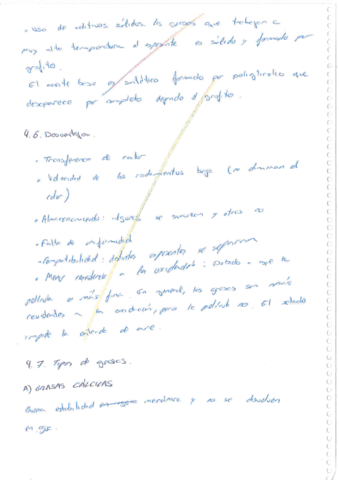 • Uso de aditivos sólidos: las grasas que trabajan a
muy alta temperatura el espesante es sólido y formado por
grafito.
El aceite base es sintético formado por poliglicoles que
desaparece por completo dejando el grafito.
4.6. Desventajas.
• Transferencia de calor
• Velocidad de los rodamientos baja (no eliminan el
calor)
• Almacenamiento: algunas se y otras no
• Falta de uniformidad
• Compatibilidad: distintos espesantes se separan
• Menor resistencia a la oxidación: a que la
película es más fina. En general, las grasas son más
resistentes a la oxidación, pero la película no. El
impide la entrada de aire.
4.7. Tipos de grasas.
A) GRASAS CÁLCICAS
Buena estabilidad mecánica y no se disuelven
en agua.